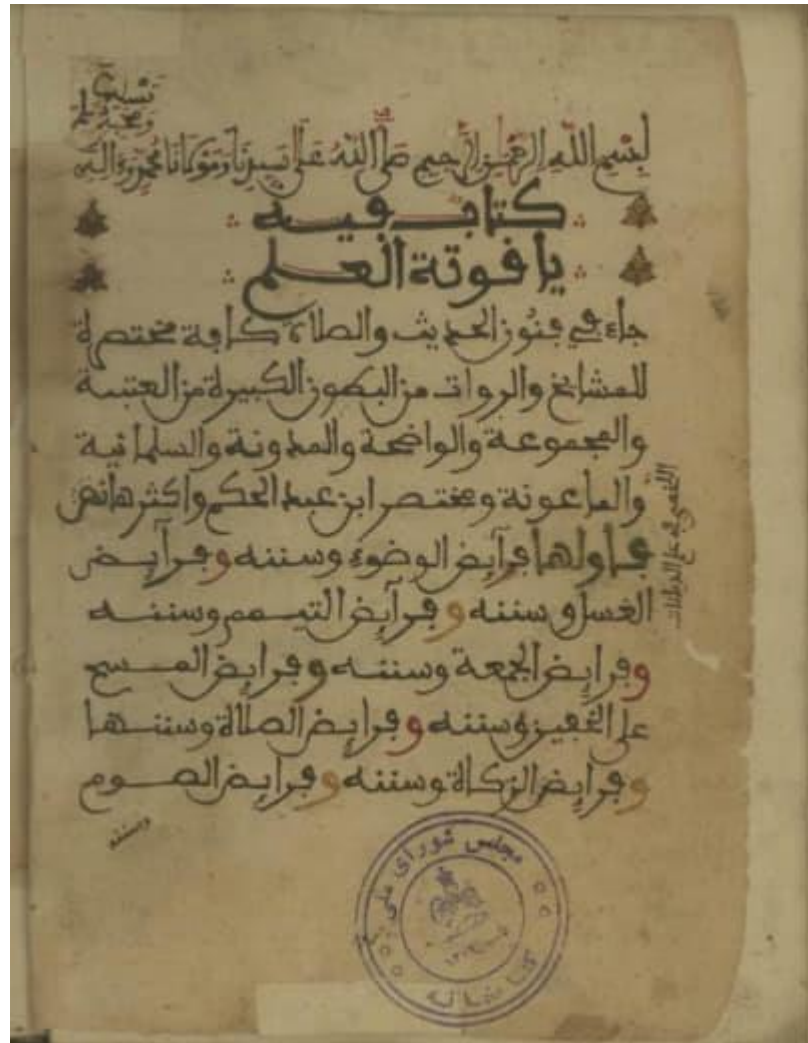 بسم الله الرحمن الرحيم صلى الله على سيدنا ومولانا محمد وءاله
كتاب فيه
ياقوتة العلم
جاء في فنون الحديث والصلاة كافية مختصرة
للمشايخ والروات من البطون الكبيرة من العتبية
والمجموعة والواضحة والمدونة والسلمانية
والماعونة ومختصر ابن عبد الحكم واكثرها نص
فاولها فرآيض الوضوء وسننه وفرآيض
الغسل وسننه وفرآيض التيمم وسننه
وفرايض الجمعة وسننه وفرايض المسح
على الخفين وسننه وفرايض الصلاة وسننها
وفرايض الزكاة وسننه وفرايض الصوم
وسننه
مجلس شورای ملی
کتابخانه